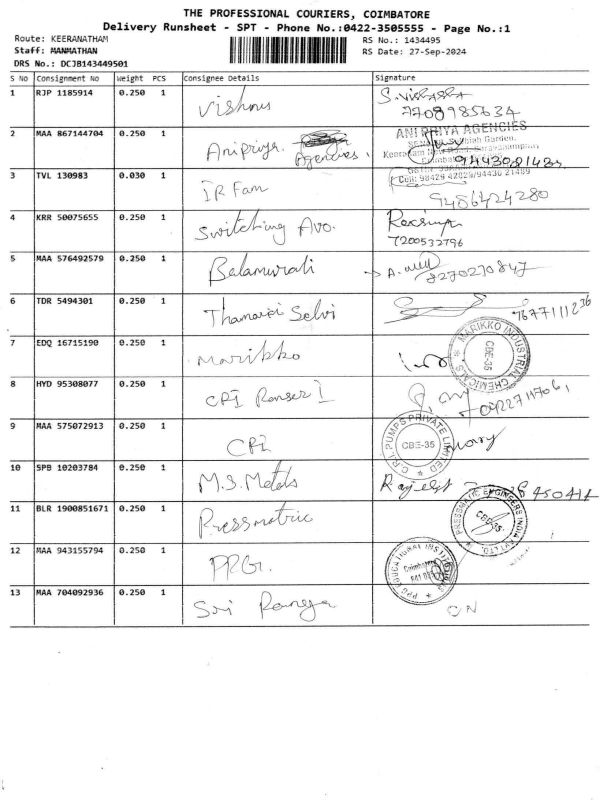 THE PROFESSIONAL COURIERS, COIMBATORE
Delivery Runsheet - SPT - Phone No.:0422-3505555 - Page No.:1
Route: KEERANATHAM
RS No.: 1434495
Staff: MANMATHAN
RS Date: 27-Sep-2024
DRS No.: DCJB143449501
S No Consignment No Weight PCS Consignee Details Signature
1 RJP 1185914 0.250 1 Vishnu
7708985634
2 MAA 867144704 0.250 1 Anipriya Agencies. ANI PRIYA AGENCIES
9443081485
3 TVL 130983 0.030 1 IR Fam
Cell: 98429 42823/94430 21489
9486424280
4 KRR 50075655 0.250 1 Switching Avo.
7200532796
5 MAA 576492579 0.250 1 Balamurali
8270270847
6 TDR 5494301 0.250 1 Thamarai Selvi
7 EDQ 16715190 0.250 1 Marikko MARIKKO INDUSTRIAL CHEMICALS CBE-35
8 HYD 95308077 0.250 1 CPI
9 MAA 575072913 0.250 1 CPI C.R.I. PUMPS PRIVATE LIMITED CBE-35
10 SPB 10203784 0.250 1 M.S. Metals Rajesh
11 BLR 1900851671 0.250 1 Pressmatric CBE-35.
12 MAA 943155794 0.250 1 PPG. PPG EDUCATIONAL INSTITUTIONS Coimbatore
13 MAA 704092936 0.250 1 Sri Ranga